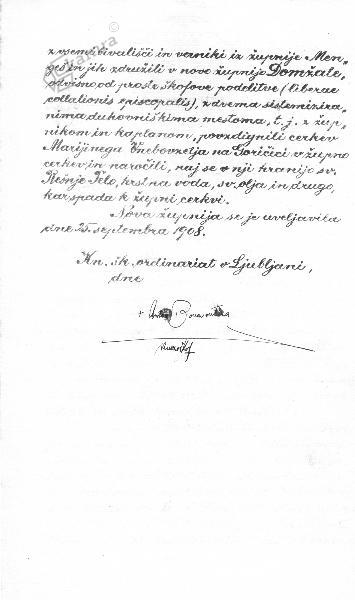 z vsemi bivališči in verniki iz župnije Men-
geš in jih združili v novo župnijo Domžale,
odvisno od proste škofove podelitve (liberae
collationis episcopalis), z dvema sistemizira-
nima duhovniškima mestoma, t. j. z žup-
nikom in kaplanom, povzdignili cerkev
Marijinega Vnebovzetja na Goričici v župno
cerkev in naročili, naj se v nji hranijo sv.
Rešnje Telo, krstna voda, sv. olja in drugo,
kar spada k župni cerkvi.
Nova župnija se je uveljavila
dne 25. septembra 1908.
Kn. šk. ordinariat v Ljubljani,
dne